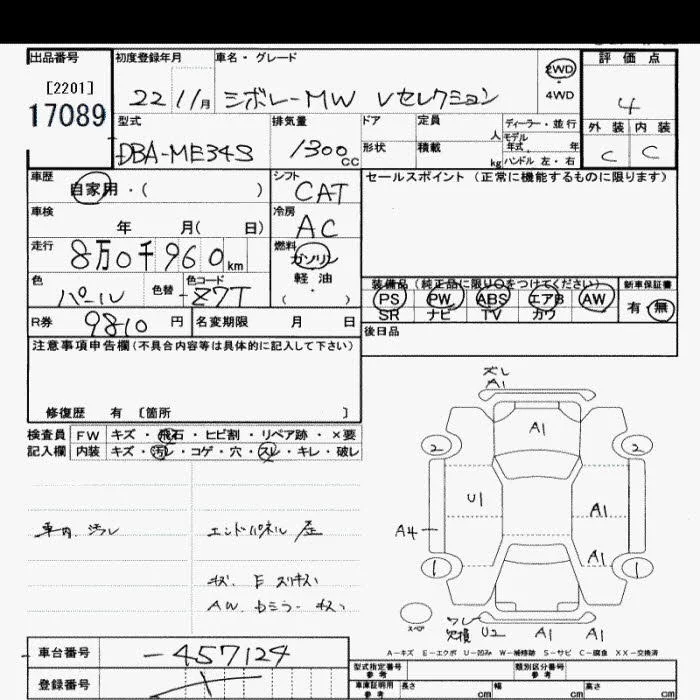 出品番号 初度登録年月 車名・グレード 2WD 評価点
[2201]
17089 22 11月 シボレーMW Vセレクション ・4WD 4
型式 排気量 ドア 定員 人 ディーラー・並行 外装 内装
DBA-ME34S 1300cc 形状 積載 kg モデル年式 ・ 年 ハンドル 左・右 C C
車歴 自家用・( ) シフト CAT セールスポイント (正常に機能するものに限ります)
車検 年 月( 日) 冷房 AC
走行 8万0千960km 燃料 ガソリン
軽油
( ・ )
色 パール 色替 色コード Z7T 装備品(純正品に限り○をつけてください) 新車保証書
PS PW ABS エアB AW 有・無
SR ナビ TV カワ
R券 9810円 名変期限 月 日 後日品
注意事項申告欄(不具合内容等は具体的に記入して下さい)
修復歴 有 〔箇所 〕
検査員 FW キズ・飛石・ヒビ割・リペア跡・×要
記入欄 内装 キズ・汚レ・コゲ・穴・スレ・キレ・破レ
ズレ
A1
A1
2 2
U1 A1
A4
A1
1 1
スペア
U2 A1 A1
車内汚レ エンドパネル歪
A-キズ E-エクボ U-凹み W-補修跡 S-サビ C-腐食 XX-交換済
車台番号 -457124
登録番号
型式指定番号 参考 類別区分番号 参考
車庫証明用 参考 長さ cm 幅 cm 高さ cm